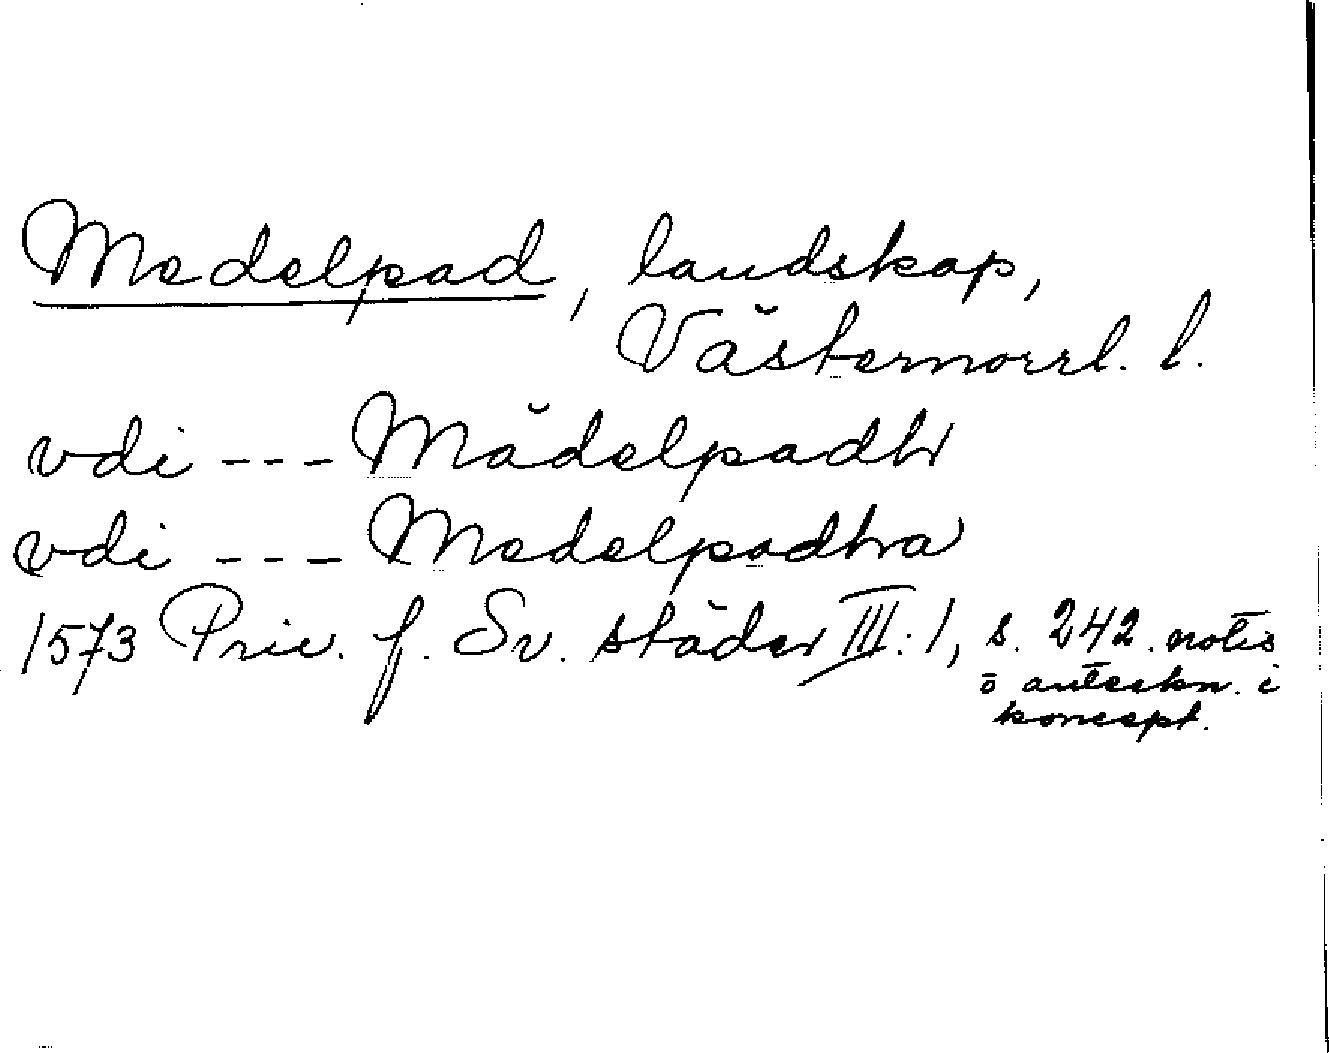 Medelpad, landskap,
Västernorrl. l.
vdi --- Mädelpadh
vdi --- Medelpadhra
1573 Priv. f. Sv. städer III:1, s. 242. notis
o anteckn. i
koncept.